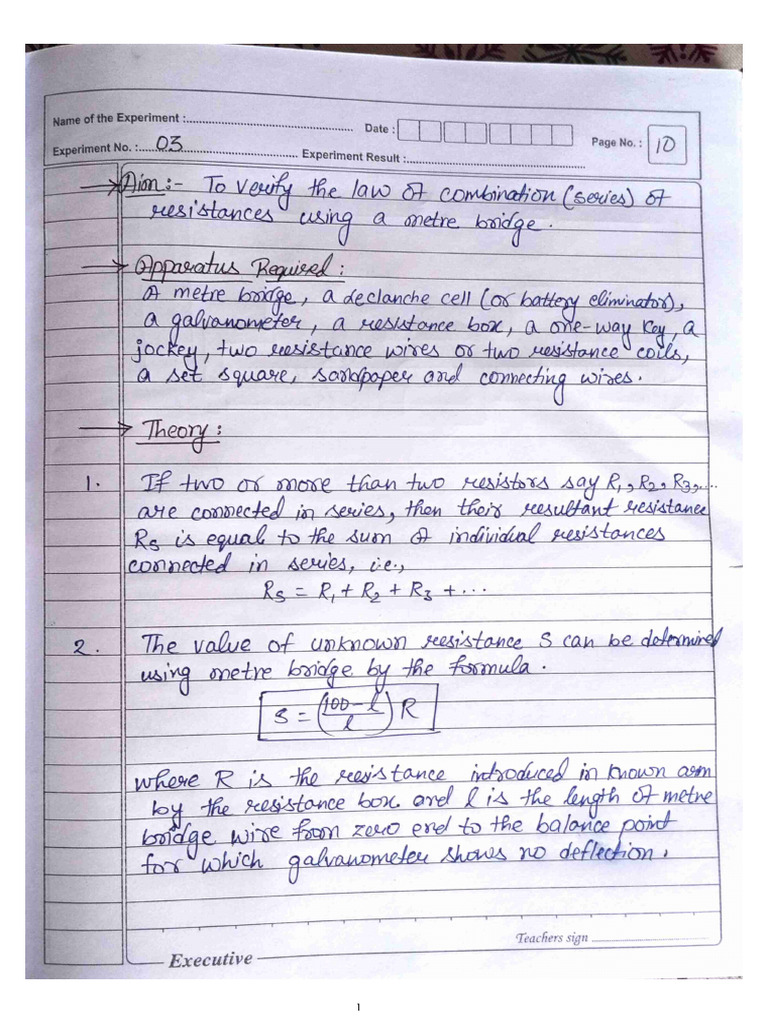 Name of the Experiment :
Date :
Page No. : 10
Experiment No. : 03 Experiment Result :
→ Aim :- To verify the law of combination (series) of
resistances using a metre bridge.
→ Apparatus Required :
A metre bridge, a declanche cell (or battery eliminator),
a galvanometer, a resistance box, a one-way key, a
jockey, two resistance wires or two resistance coils,
a set square, sandpaper and connecting wires.
→ Theory :
1. If two or more than two resistors say R₁, R₂, R₃,...
are connected in series, then their resultant resistance
Rs is equal to the sum of individual resistances
connected in series, i.e.,
Rs = R₁ + R₂ + R₃ + ...
2. The value of unknown resistance S can be determined
using metre bridge by the formula.
S = (100-l / l) R
where R is the resistance introduced in known arm
by the resistance box and l is the length of metre
bridge wire from zero end to the balance point
for which galvanometer shows no deflection.
Teachers sign
Executive
1